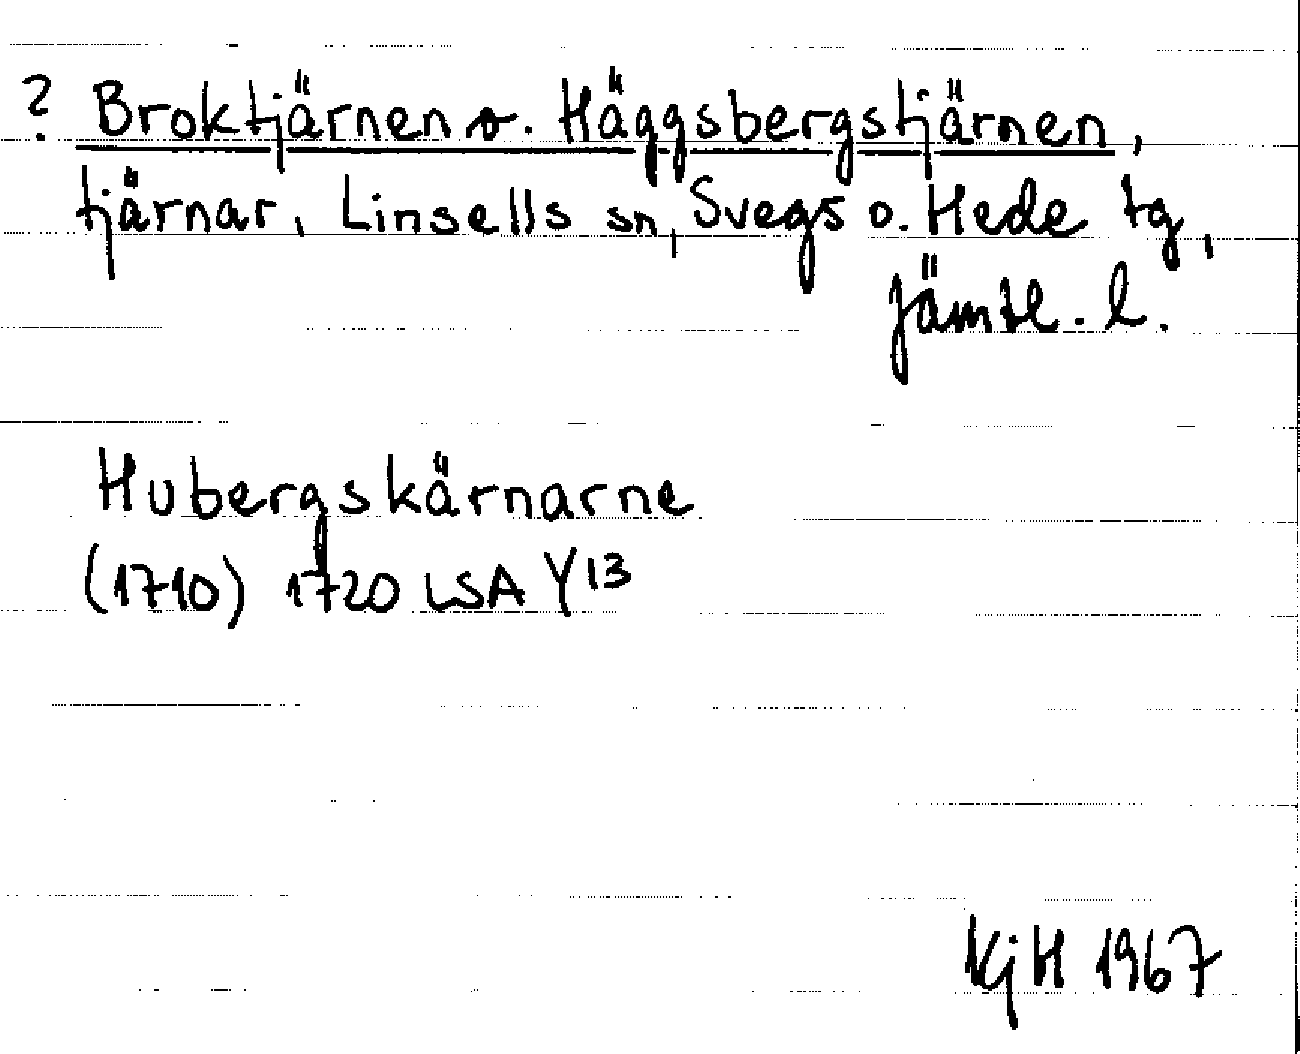 ? Broktjärnen o. Häggsbergstjärnen,
tjärnar, Linsells sn, Svegs o. Hede tg,
Jämtl. l.
Hubergskärnarne
(1710) 1720 LSA Y13
KjH 1967